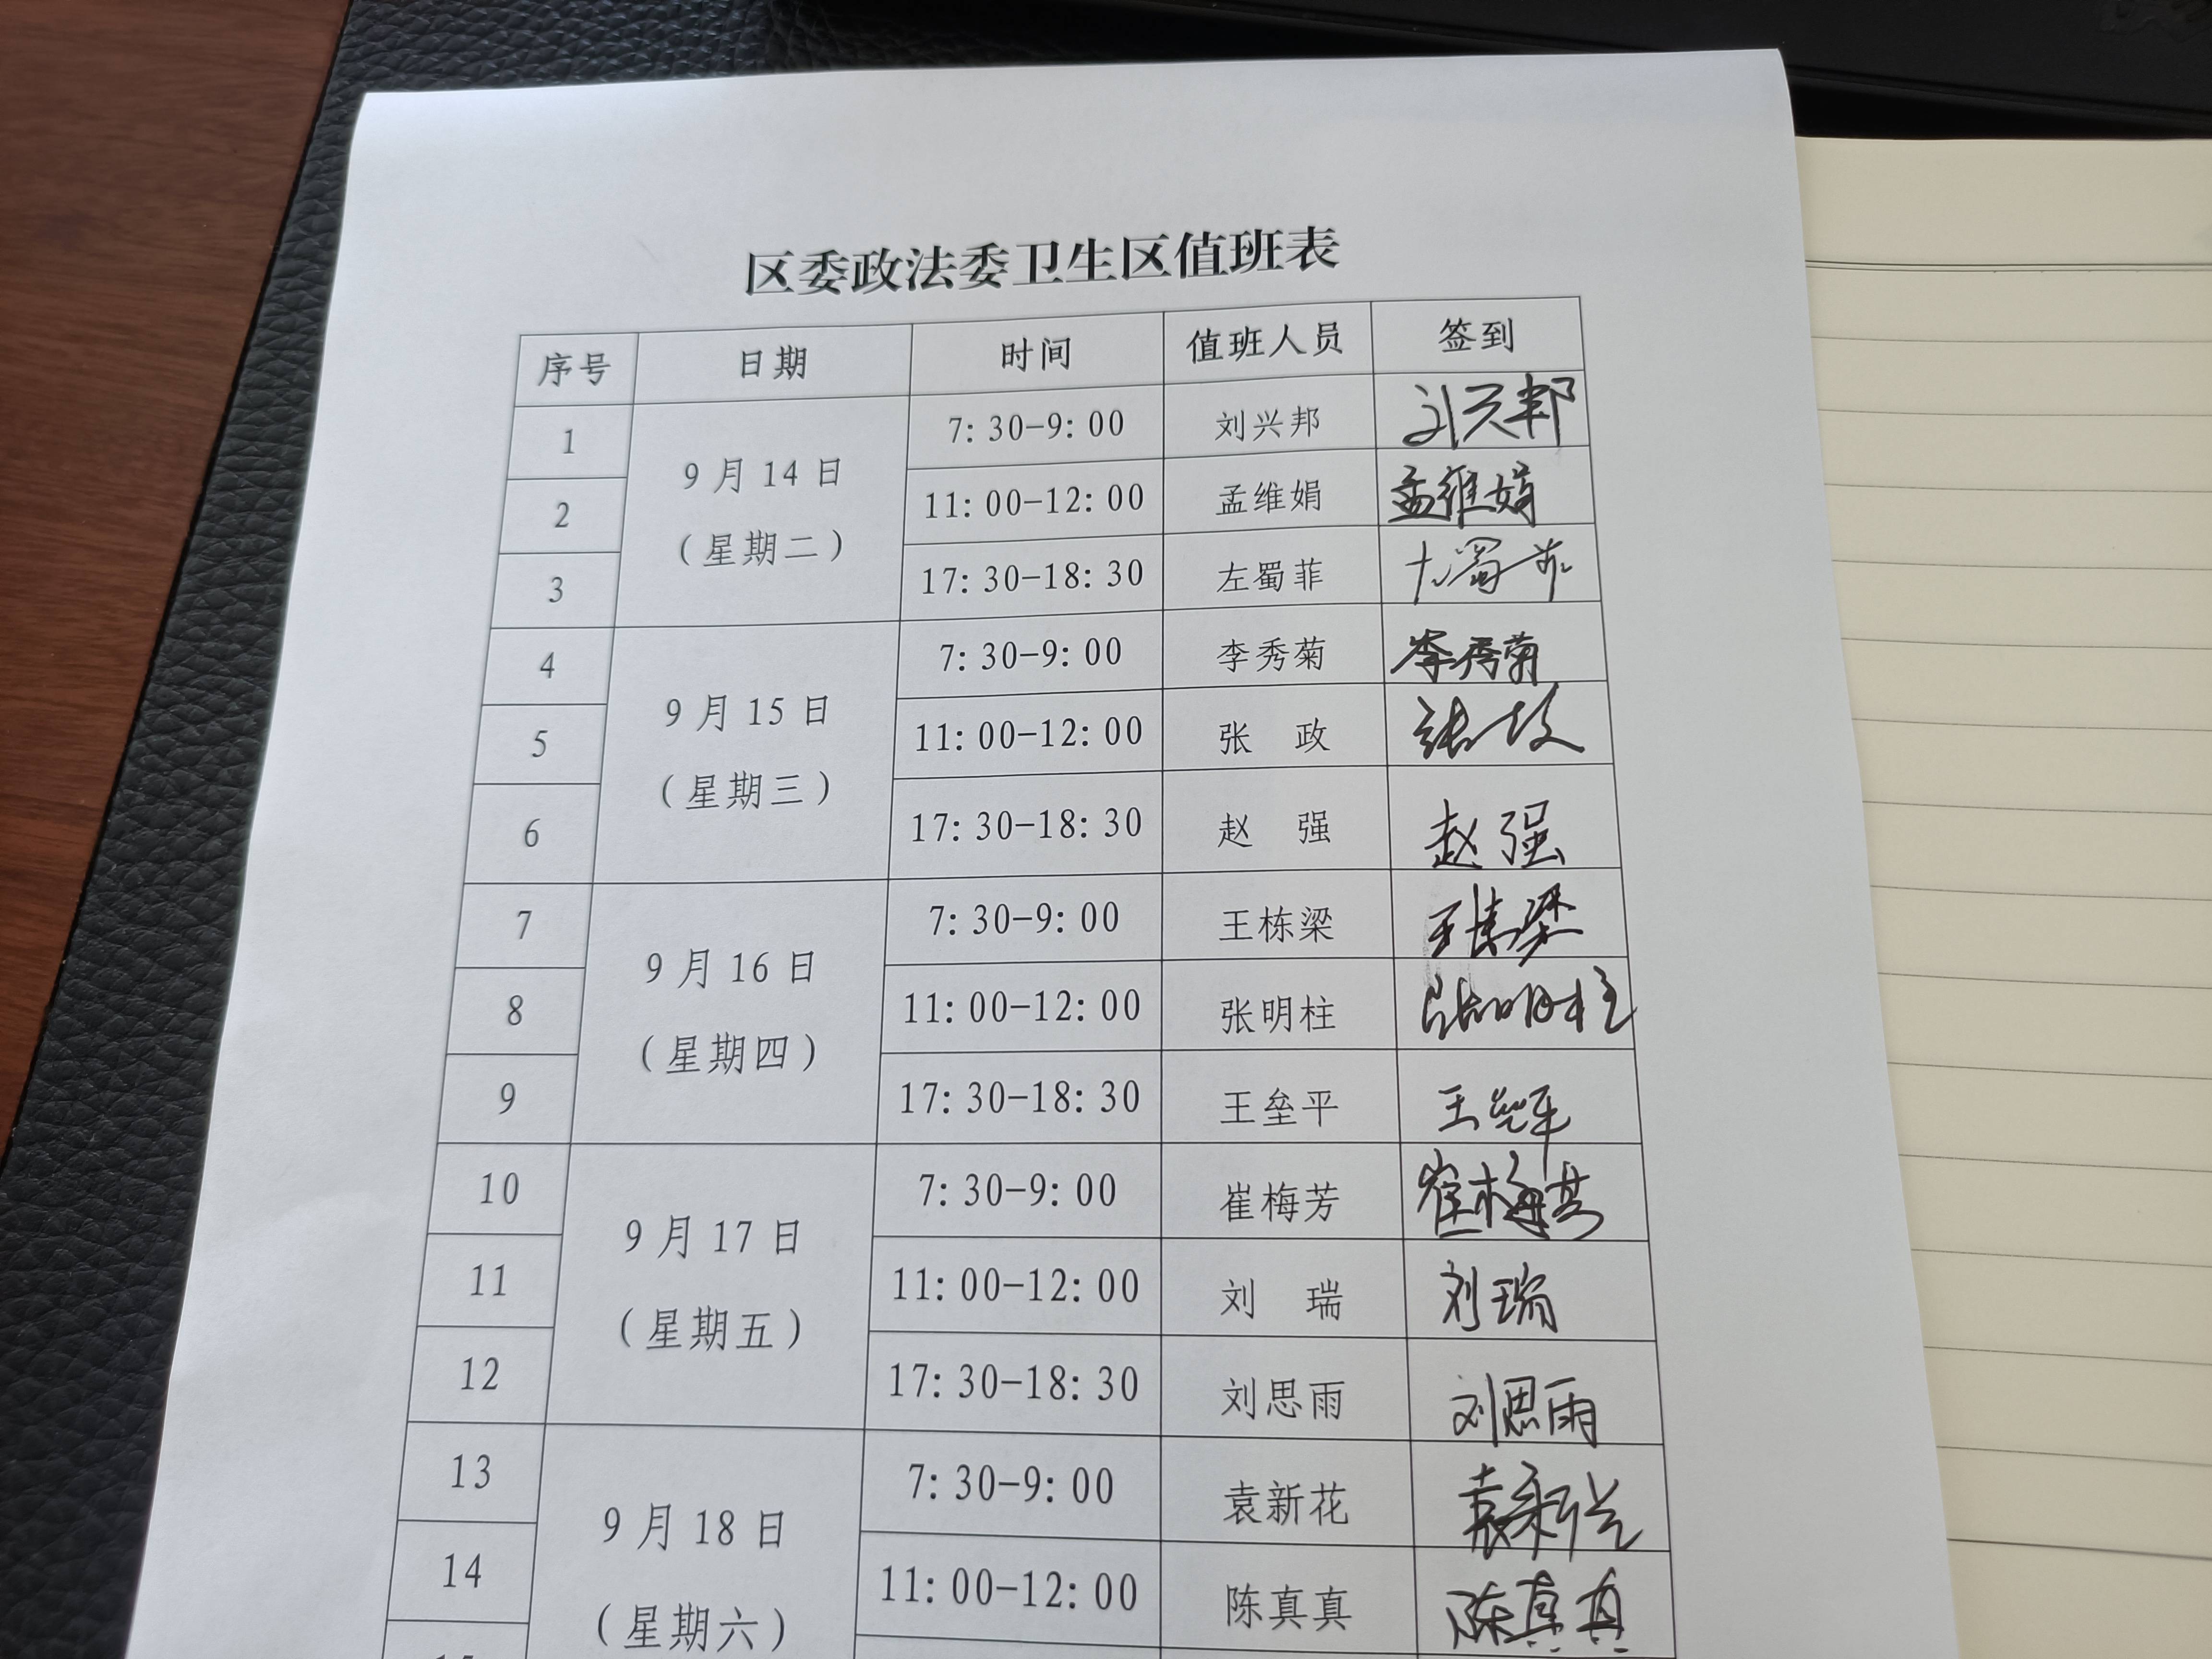 区委政法委卫生区值班表
序号 日期 时间 值班人员 签到
1 9月14日（星期二） 7:30-9:00 刘兴邦 刘兴邦
2 11:00-12:00 孟维娟 孟维娟
3 17:30-18:30 左蜀菲 左蜀菲
4 9月15日（星期三） 7:30-9:00 李秀菊 李秀菊
5 11:00-12:00 张 政 张政
6 17:30-18:30 赵 强 赵强
7 9月16日（星期四） 7:30-9:00 王栋梁 王栋梁
8 11:00-12:00 张明柱 张明柱
9 17:30-18:30 王垒平 王垒平
10 9月17日（星期五） 7:30-9:00 崔梅芳 崔梅芳
11 11:00-12:00 刘 瑞 刘瑞
12 17:30-18:30 刘思雨 刘思雨
13 9月18日（星期六） 7:30-9:00 袁新花 袁新花
14 11:00-12:00 陈真真 陈真真